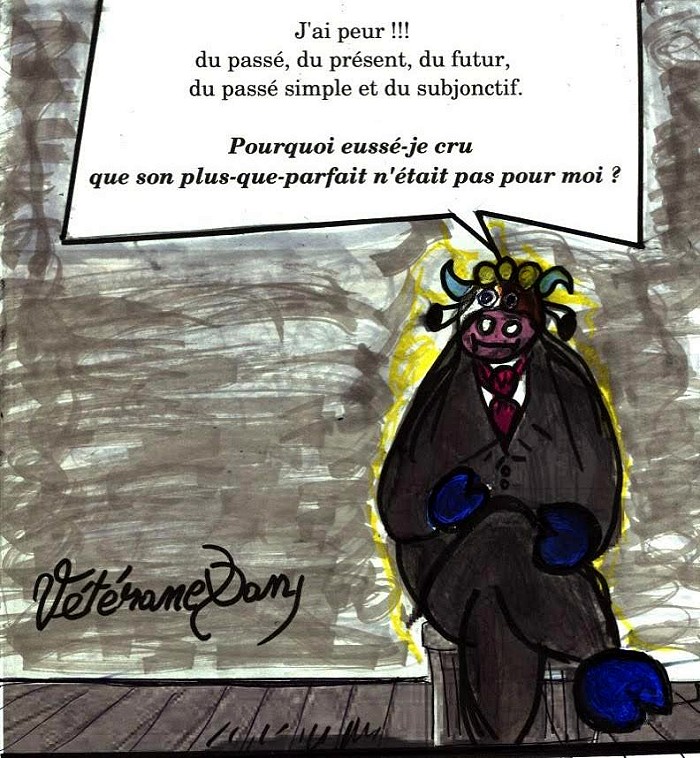 J'ai peur !!!
du passé, du présent, du futur,
du passé simple et du subjonctif.
Pourquoi eussé-je cru
que son plus-que-parfait n'était pas pour moi ?
VétéraneDany